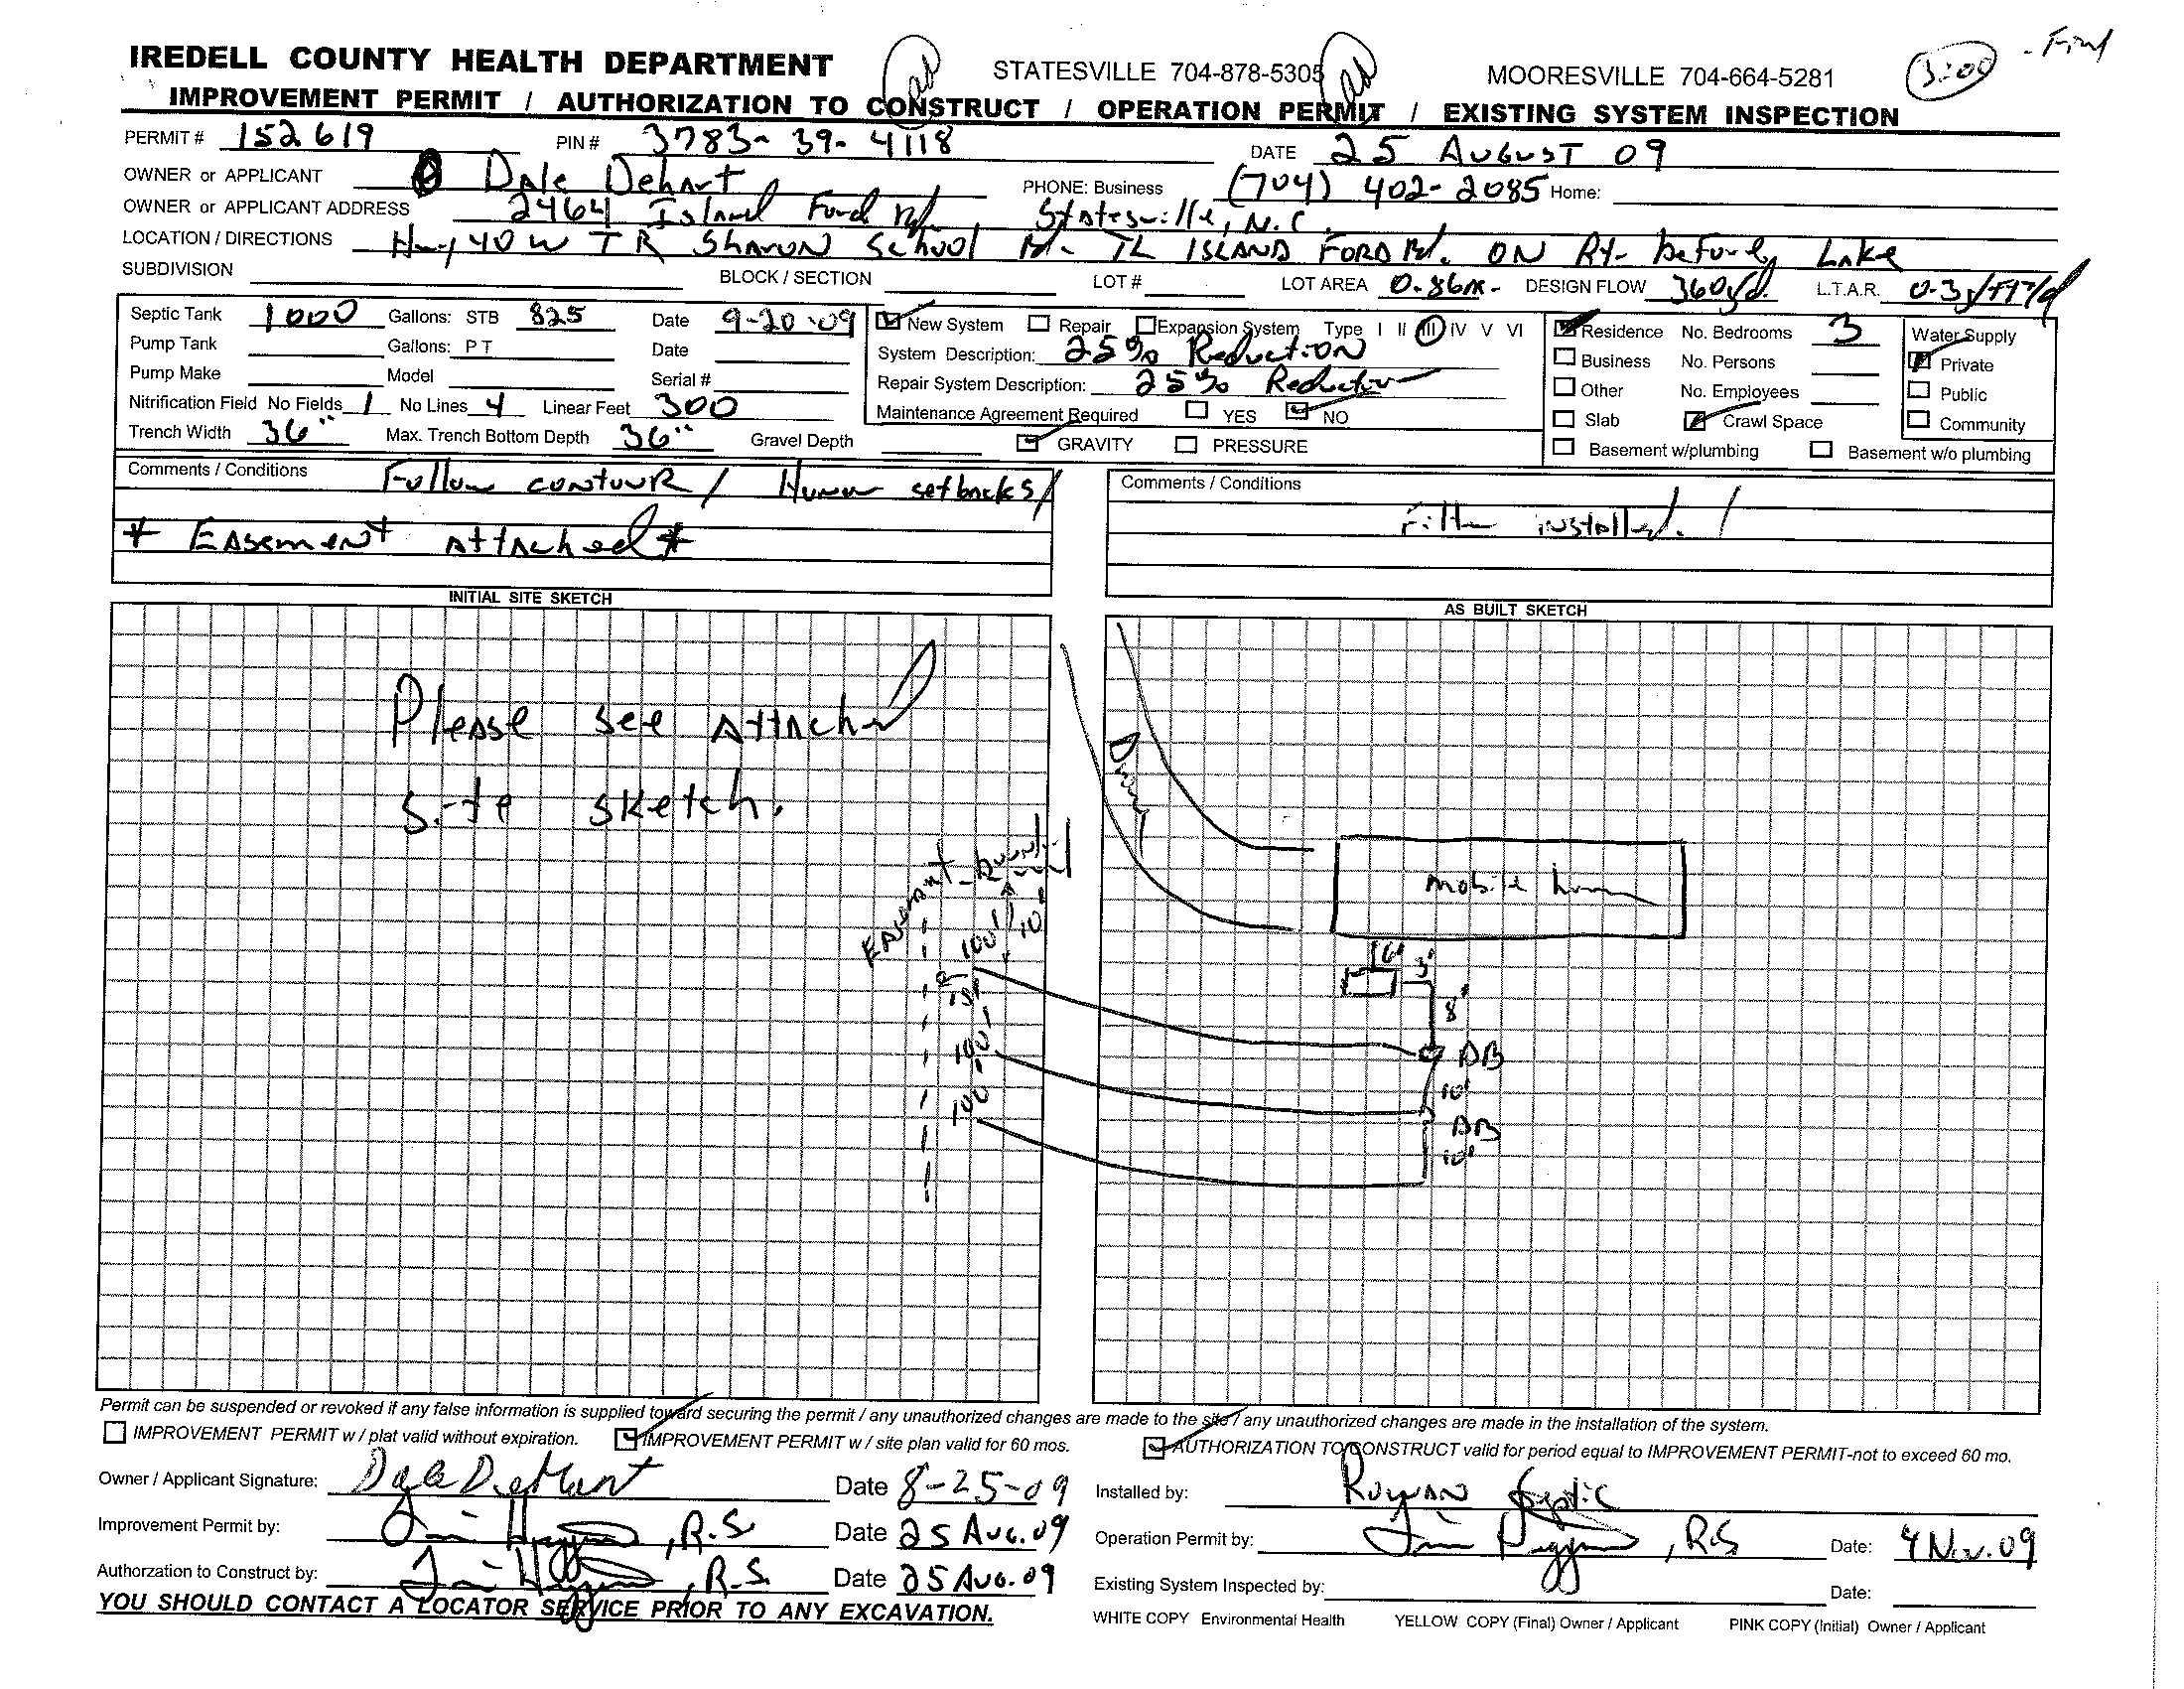 3:00 - Final
IREDELL COUNTY HEALTH DEPARTMENT STATESVILLE 704-878-5305 MOORESVILLE 704-664-5281
IMPROVEMENT PERMIT / AUTHORIZATION TO CONSTRUCT / OPERATION PERMIT / EXISTING SYSTEM INSPECTION
PERMIT # 152619 PIN # 3783-39-4118 DATE 25 AUGUST 09
OWNER or APPLICANT Dale Dehart PHONE: Business (704) 402-2085 Home:
OWNER or APPLICANT ADDRESS 2464 Island Ford Rd. Statesville, N.C.
LOCATION / DIRECTIONS Hwy 40 W TR Sharon School Rd. TL ISLAND FORD Rd. ON Rt. before Lake
SUBDIVISION BLOCK / SECTION LOT # LOT AREA 0.86ac. DESIGN FLOW 360g/d. L.T.A.R. 0.3g/ft²/d
Septic Tank 1000 Gallons: STB 825 Date 9-20-09 New System Repair Expansion System Type I II III IV V VI Residence No. Bedrooms 3 Water Supply
Pump Tank Gallons: PT Date System Description: 25% Reduction Business No. Persons Private
Pump Make Model Serial # Repair System Description: 25% Reduction Other No. Employees Public
Nitrification Field No Fields 1 No Lines 4 Linear Feet 300 Maintenance Agreement Required YES NO Slab Crawl Space Community
Trench Width 36" Max. Trench Bottom Depth 36" Gravel Depth GRAVITY PRESSURE Basement w/plumbing Basement w/o plumbing
Comments / Conditions Follow contour / Honor setbacks /
* Easement Attached *
Comments / Conditions
Filter installed. /
INITIAL SITE SKETCH
Please see Attached
Site sketch.
AS BUILT SKETCH
Drive
mobile home
Easement
100' 10'
100'
100'
6' 3'
8'
DB
10'
DB
10'
Permit can be suspended or revoked if any false information is supplied toward securing the permit / any unauthorized changes are made to the site / any unauthorized changes are made in the installation of the system.
IMPROVEMENT PERMIT w / plat valid without expiration. IMPROVEMENT PERMIT w / site plan valid for 60 mos. AUTHORIZATION TO CONSTRUCT valid for period equal to IMPROVEMENT PERMIT-not to exceed 60 mo.
Owner / Applicant Signature: Dale DeHart Date 8-25-09 Installed by: Rowan Septic
Improvement Permit by: , R.S. Date 25 Aug. 09 Operation Permit by: , R.S. Date: 4 Nov. 09
Authorzation to Construct by: , R.S. Date 25 Aug. 09 Existing System Inspected by: Date:
YOU SHOULD CONTACT A LOCATOR SERVICE PRIOR TO ANY EXCAVATION.
WHITE COPY Environmental Health YELLOW COPY (Final) Owner / Applicant PINK COPY (Initial) Owner / Applicant